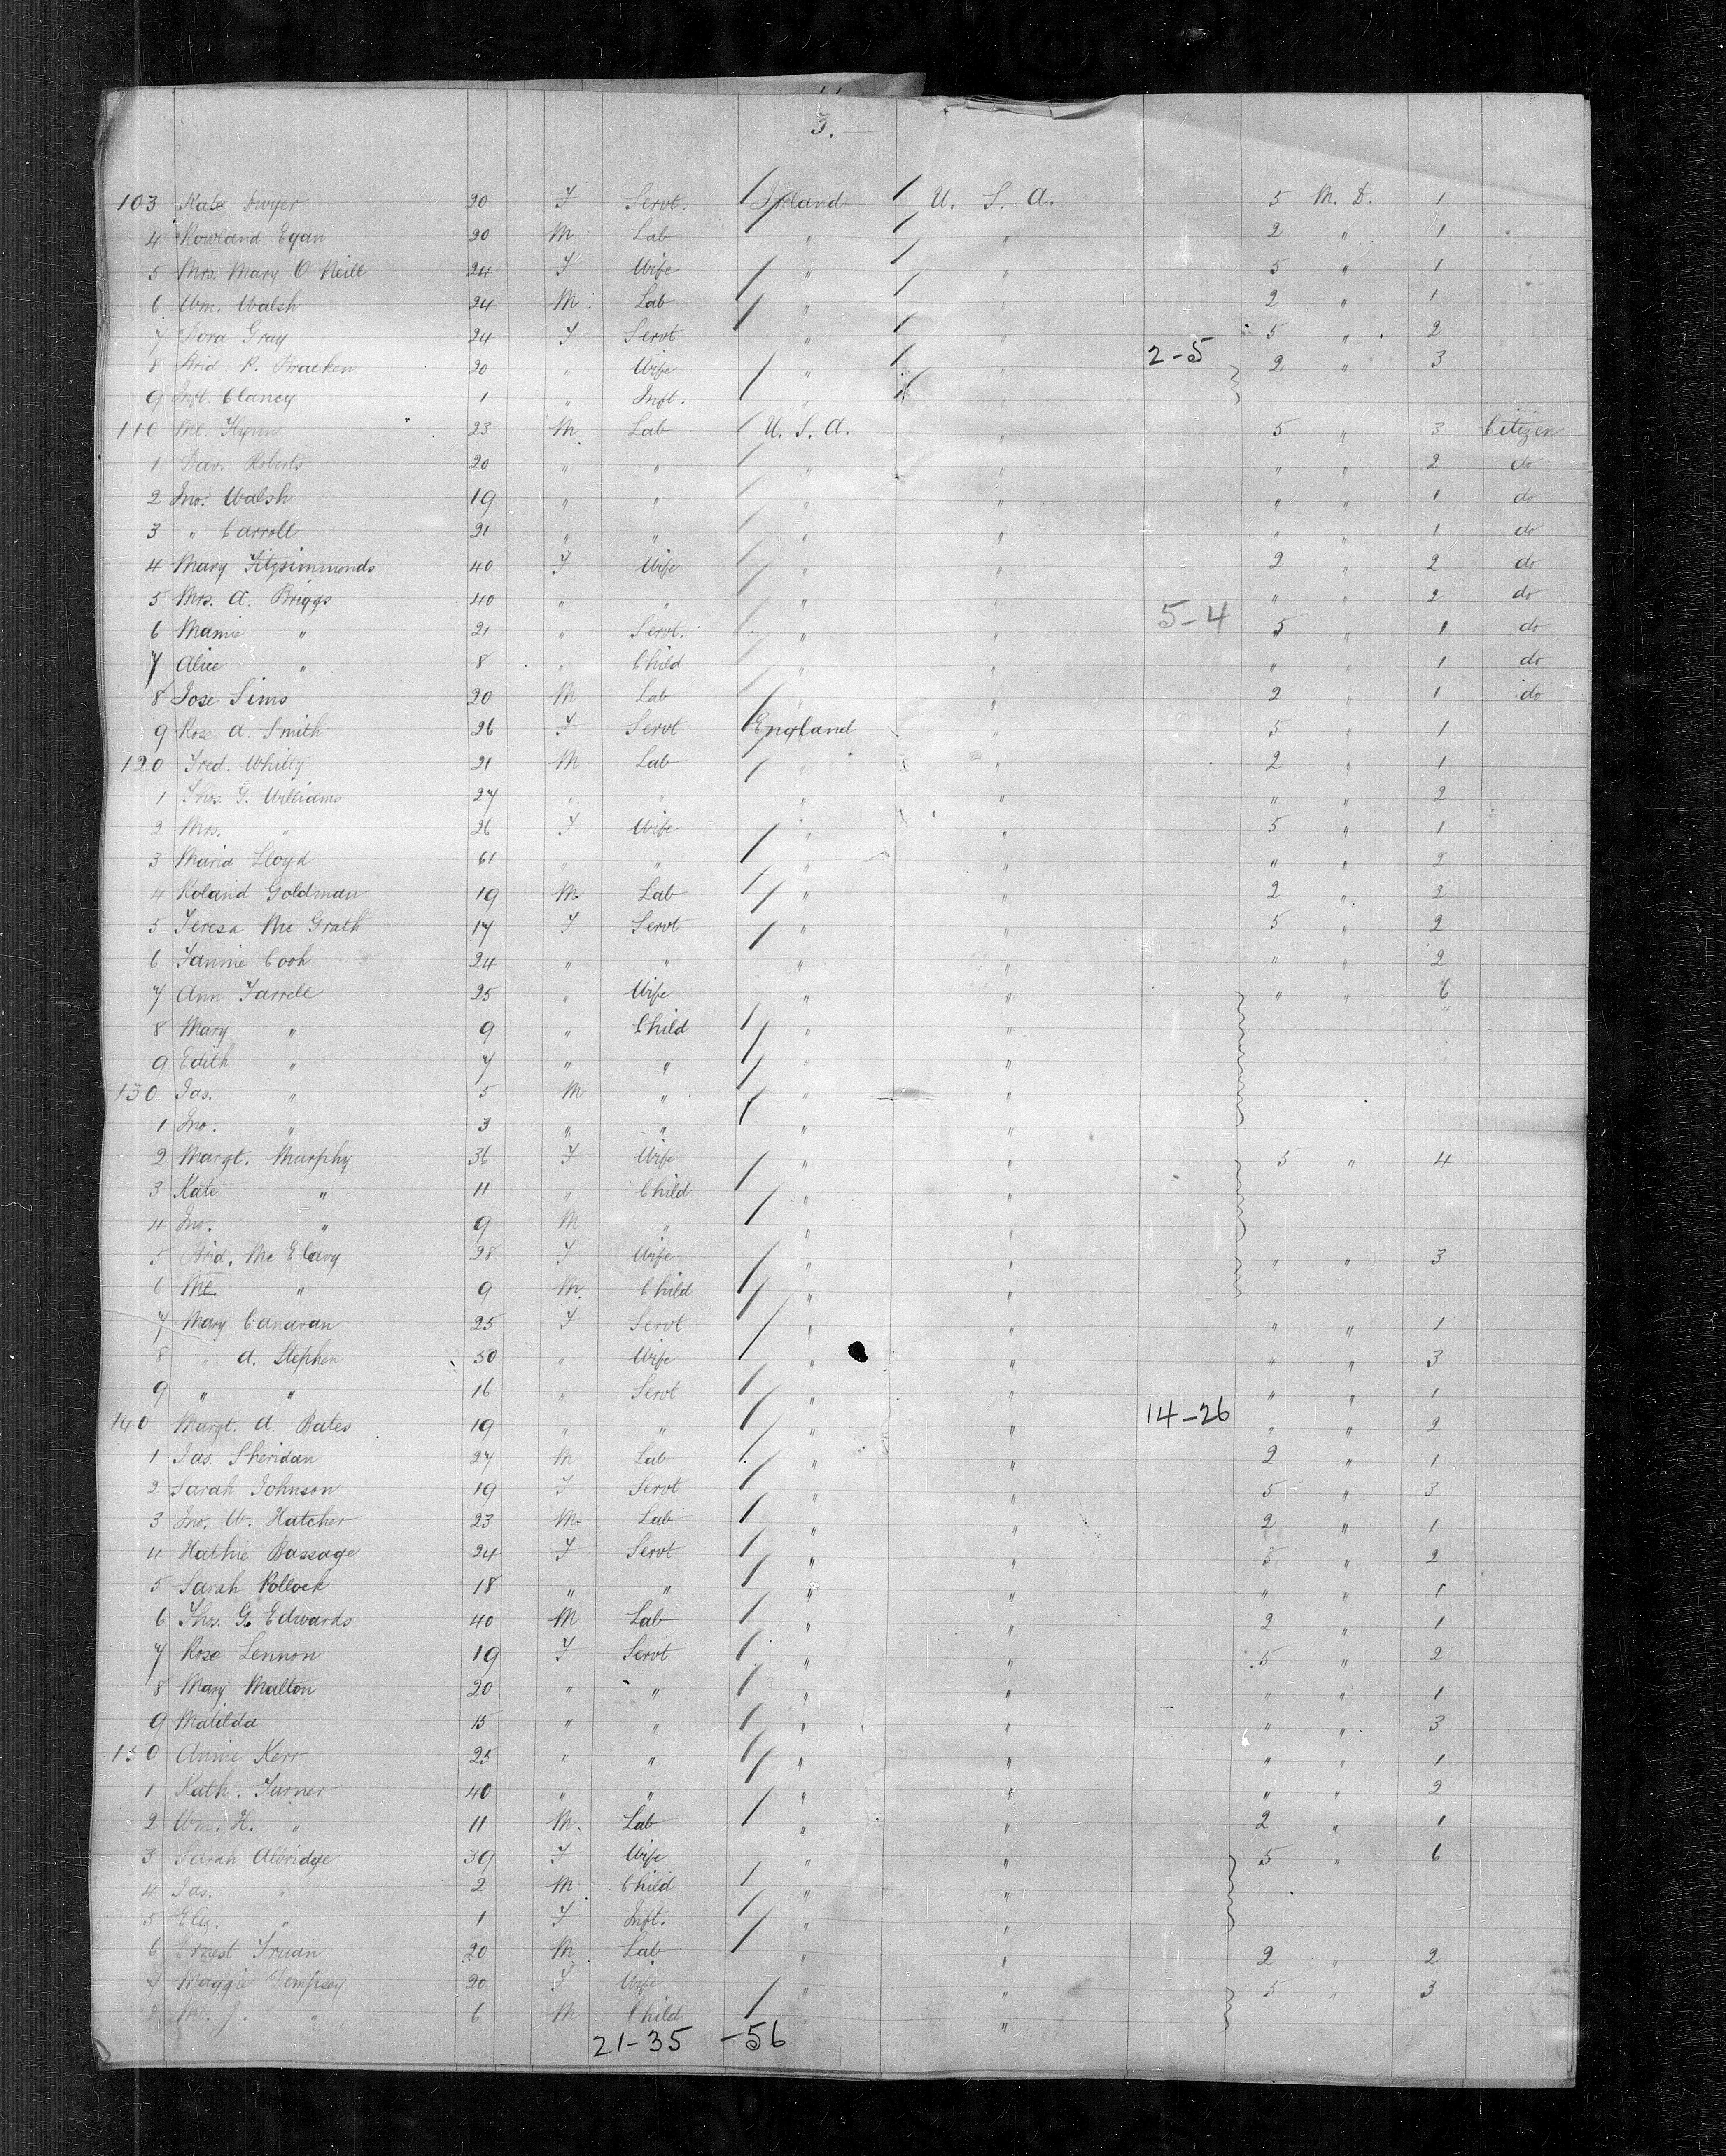 3.
103 Kate Dwyer 20 F Servt. Ireland U. S. A. 5 M. D. 1
4 Rowland Egan 20 M Lab " " 2 " 1
5 Mrs. Mary O Neill 24 F Wife " " 5 " 1
6 Wm. Walsh 24 M Lab " 2 " 1
7 Dora Gray 24 F Servt " " 5 " 2
8 Brid. P. Bracken 20 " Wife " " 2-5 2 " 3
9 Inft. Clancy 1 " Inft. " "
110 Ml. Flynn 23 M. Lab U. S. A. " 5 " 3 Citizen
1 Dav. Roberts 20 " " " " " " 2 do
2 Jno. Walsh 19 " " " " " " 1 do
3 " Carroll 21 " " " " " " 1 do
4 Mary Fitzsimmonds 40 F Wife " " 2 " 2 do
5 Mrs. A. Briggs 40 " " " " " " 2 do
6 Mamie " 21 " Servt. " " 5-4 5 " 1 do
7 Alice " 8 " Child " " " " 1 do
8 Jose Sims 20 M Lab " " 2 " 1 do
9 Rose A. Smith 26 F Servt England " 5 " 1
120 Fred. Whilly 21 M Lab " " 2 " 1
1 Thos. G. Williams 27 " " " " " " 2
2 Mrs. " 26 F Wife " " 5 " 1
3 Maria Lloyd 61 " " " " " " 2
4 Roland Goldman 19 M. Lab " " 2 " 2
5 Teresa Mc Grath 17 F Servt " " 5 " 2
6 Fannie Cook 24 " " " " " " 2
7 Ann Farrell 25 " Wife " " " " 6
8 Mary " 9 " Child " "
9 Edith " 7 " " " "
130 Jas. " 5 M " " "
1 Jno. " 3 " " " "
2 Margt. Murphy 36 F Wife " " 5 " 4
3 Kate " 11 " Child " "
4 Jno. " 9 M " " "
5 Brid. Mc Elavy 28 F Wife " " " " 3
6 Ml. " 9 M. Child " "
7 Mary Canavan 25 F Servt " " " " 1
8 " A. Stephen 50 " Wife " " " " 3
9 " " 16 " Servt " " " " 1
140 Margt. A. Bates 19 " " " " 14-26 " " 2
1 Jas. Sheridan 27 M Lab " " 2 " 1
2 Sarah Johnson 19 F Servt " " 5 " 3
3 Jno. W. Hatcher 23 M. Lab " " 2 " 1
4 Hathie Bassage 24 F Servt " " 5 " 2
5 Sarah Pollock 18 " " " " " " 1
6 Thos. G. Edwards 40 M Lab " " 2 " 1
7 Rose Lennon 19 F Servt " " 5 " 2
8 Mary Malton 20 " " " " " " 1
9 Matilda 15 " " " " " " 3
150 Annie Kerr 25 " " " " " " 1
1 Kath. Turner 40 " " " " " " 2
2 Wm. H. " 11 M. Lab " " 2 " 1
3 Sarah Albridge 39 F Wife " " 5 " 6
4 Jas. " 2 M Child " "
5 Eliz. " 1 F Inft. " "
6 Ernest Truan 20 M Lab " " 2 " 2
7 Maggie Dempsey 20 F Wife " " 5 " 3
8 Ml. J. " 6 M Child " "
21-35 -56